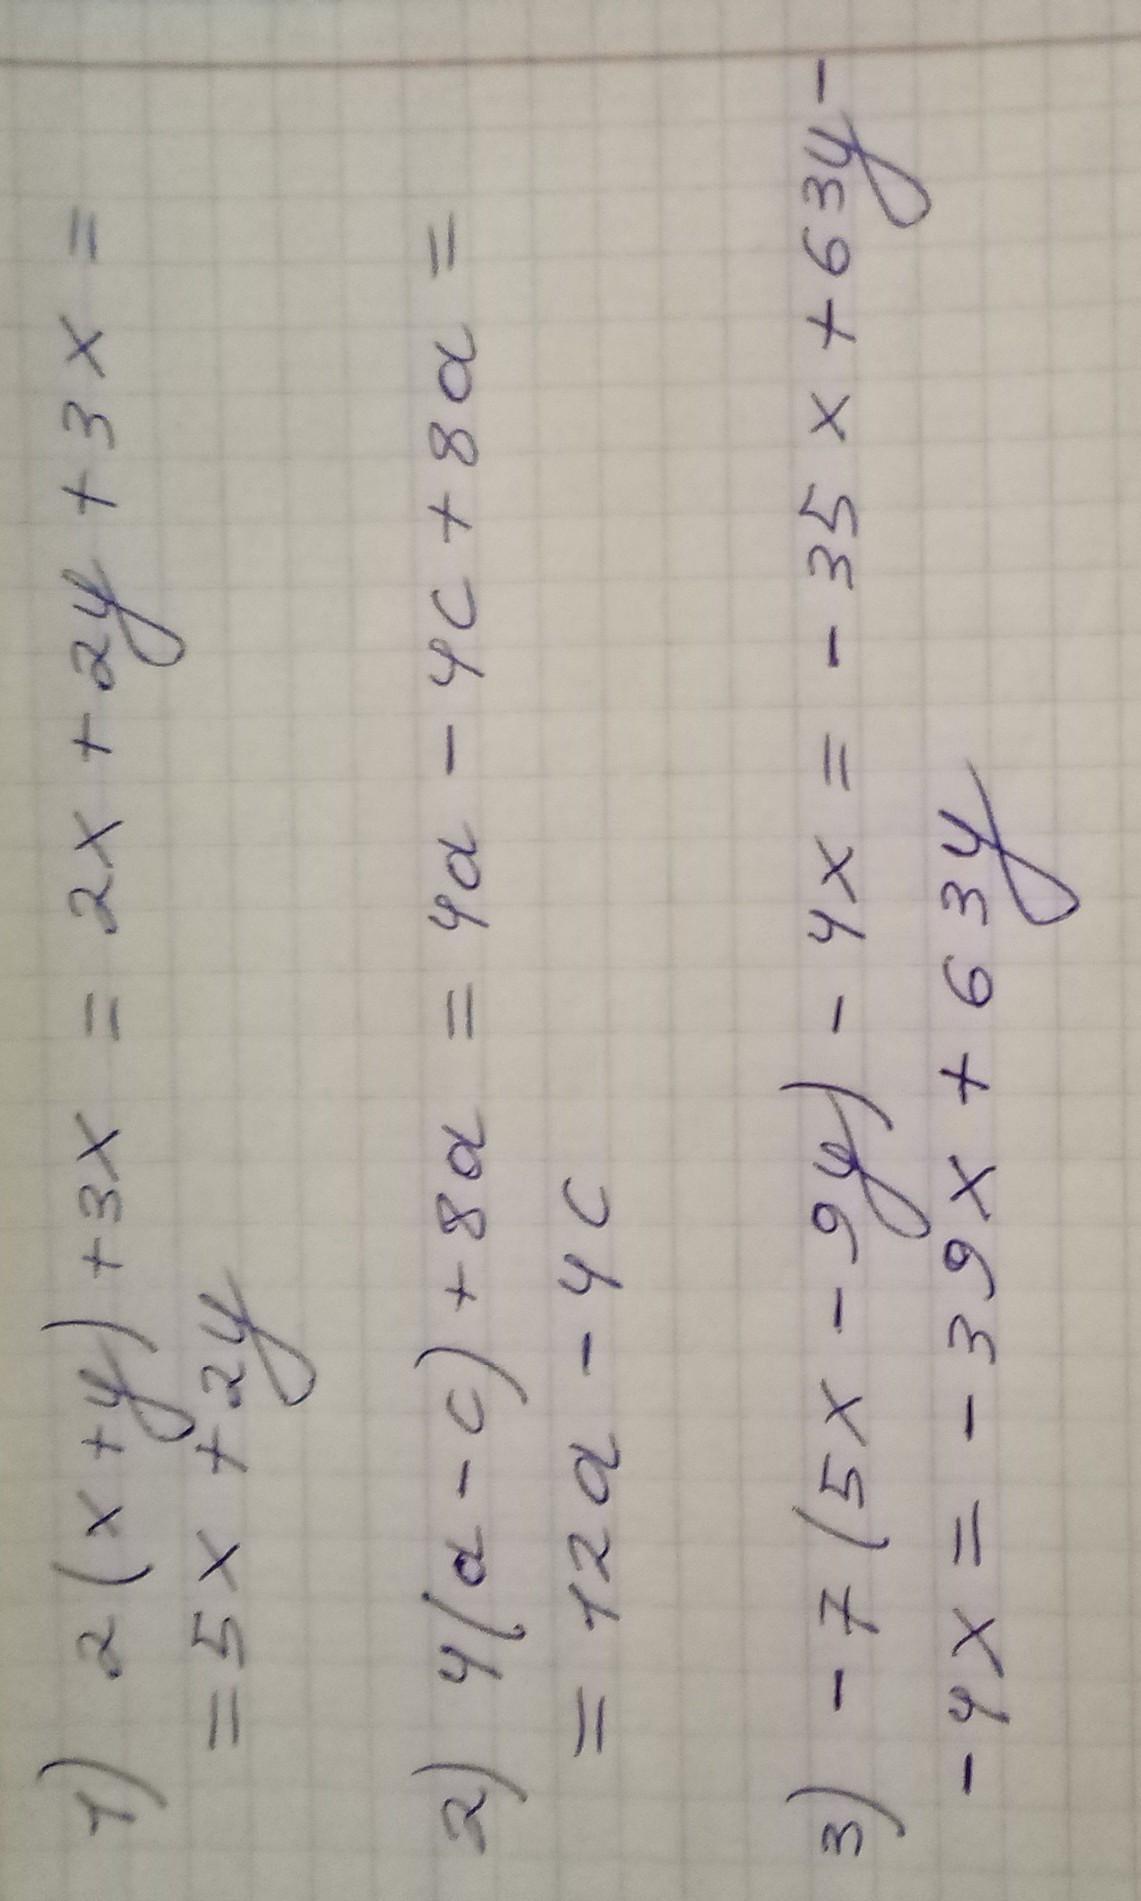 1) 2(x+y)+3x = 2x+2y+3x =
=5x+2y
2) 4(a-c)+8a = 4a-4c+8a =
= 12a-4c
3) -7(5x-9y)-4x = -35x+63y-
-4x = -39x+63y